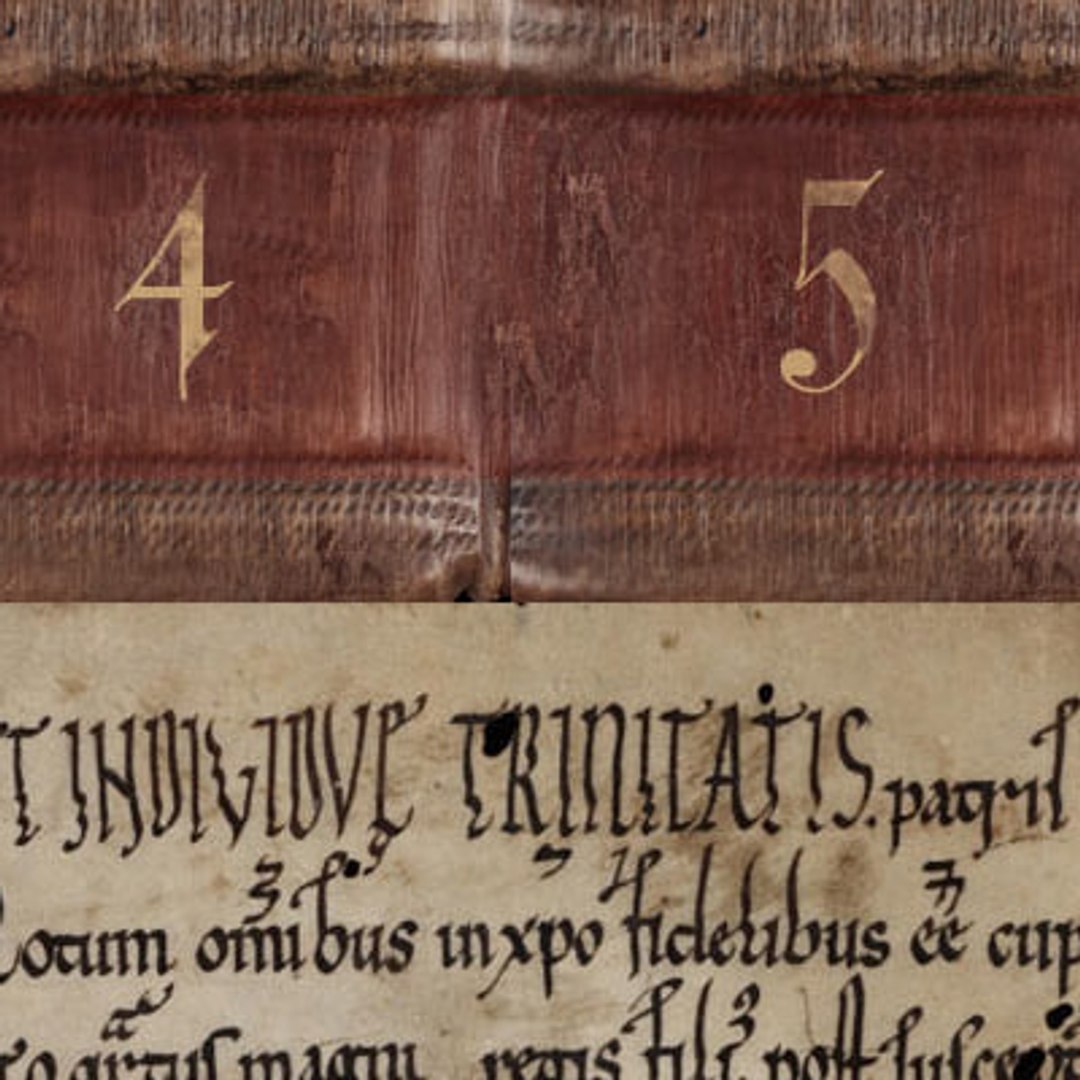 4 5
T INDIVIDVE TRINITATIS. patris
otum omibus inxpo fidelibus eē cup
magni regis filī post